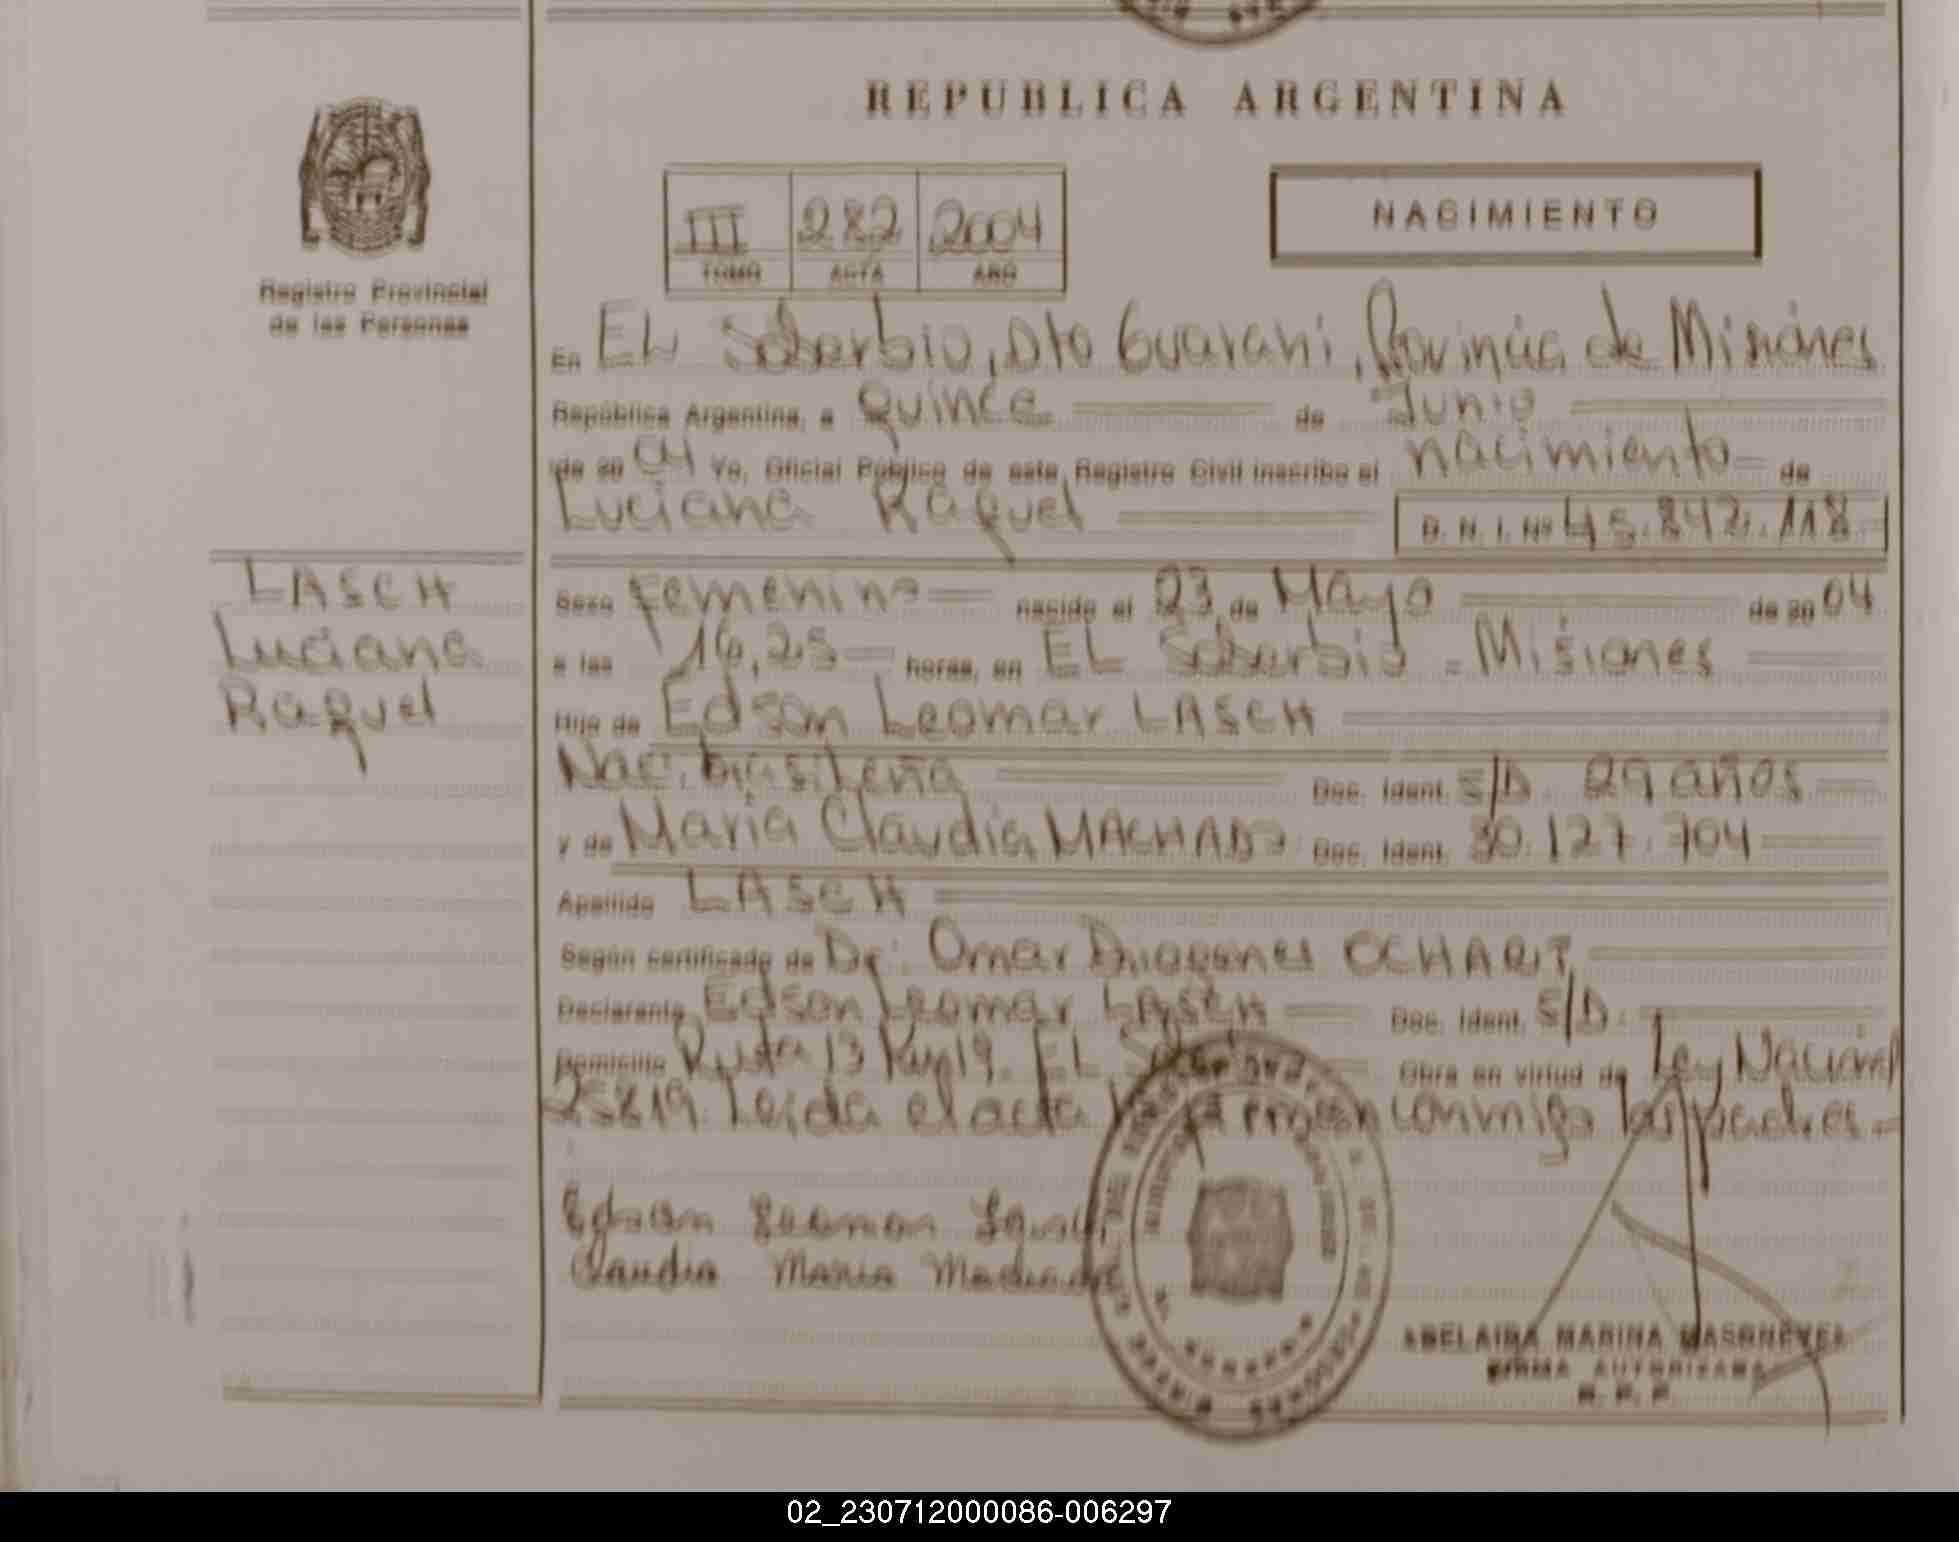 REPUBLICA ARGENTINA
NACIMIENTO
III 282 2004
TOMO ACTA AÑO
Registro Provincial
de las Personas
En EL Soberbio, Dto Guarani, Provincia de Misiones
República Argentina, a Quince de Junio
de 20 04 Yo, Oficial Público de este Registro Civil inscribo el nacimiento de
Luciana Raquel D. N. I. Nº 45.842.118
LASCH
Luciana
Raquel
Sexo femenino nacido el 23 de Mayo de 20 04
a las 16,25 horas, en EL Soberbio - Misiones
Hijo de Edson Leomar LASCH
Nac. brasileña Doc. Ident. S/D. 29 años
y de Maria Claudia MACHADO Doc. Ident. 30.127.704
Apellido LASCH
Según certificado de Dr. Omar Diogenes OCHART
Declarante Edson Leomar LASCH Doc. Ident. S/D.
Domicilio Ruta 13 Km 19. EL Obra en virtud de Ley Nacional
25819. Leida el acta conmigo los padres -
Edson Leomar
Claudia Maria Machado
MARINA
FIRMA AUTORIZADA
R. P. P.
02_230712000086-006297